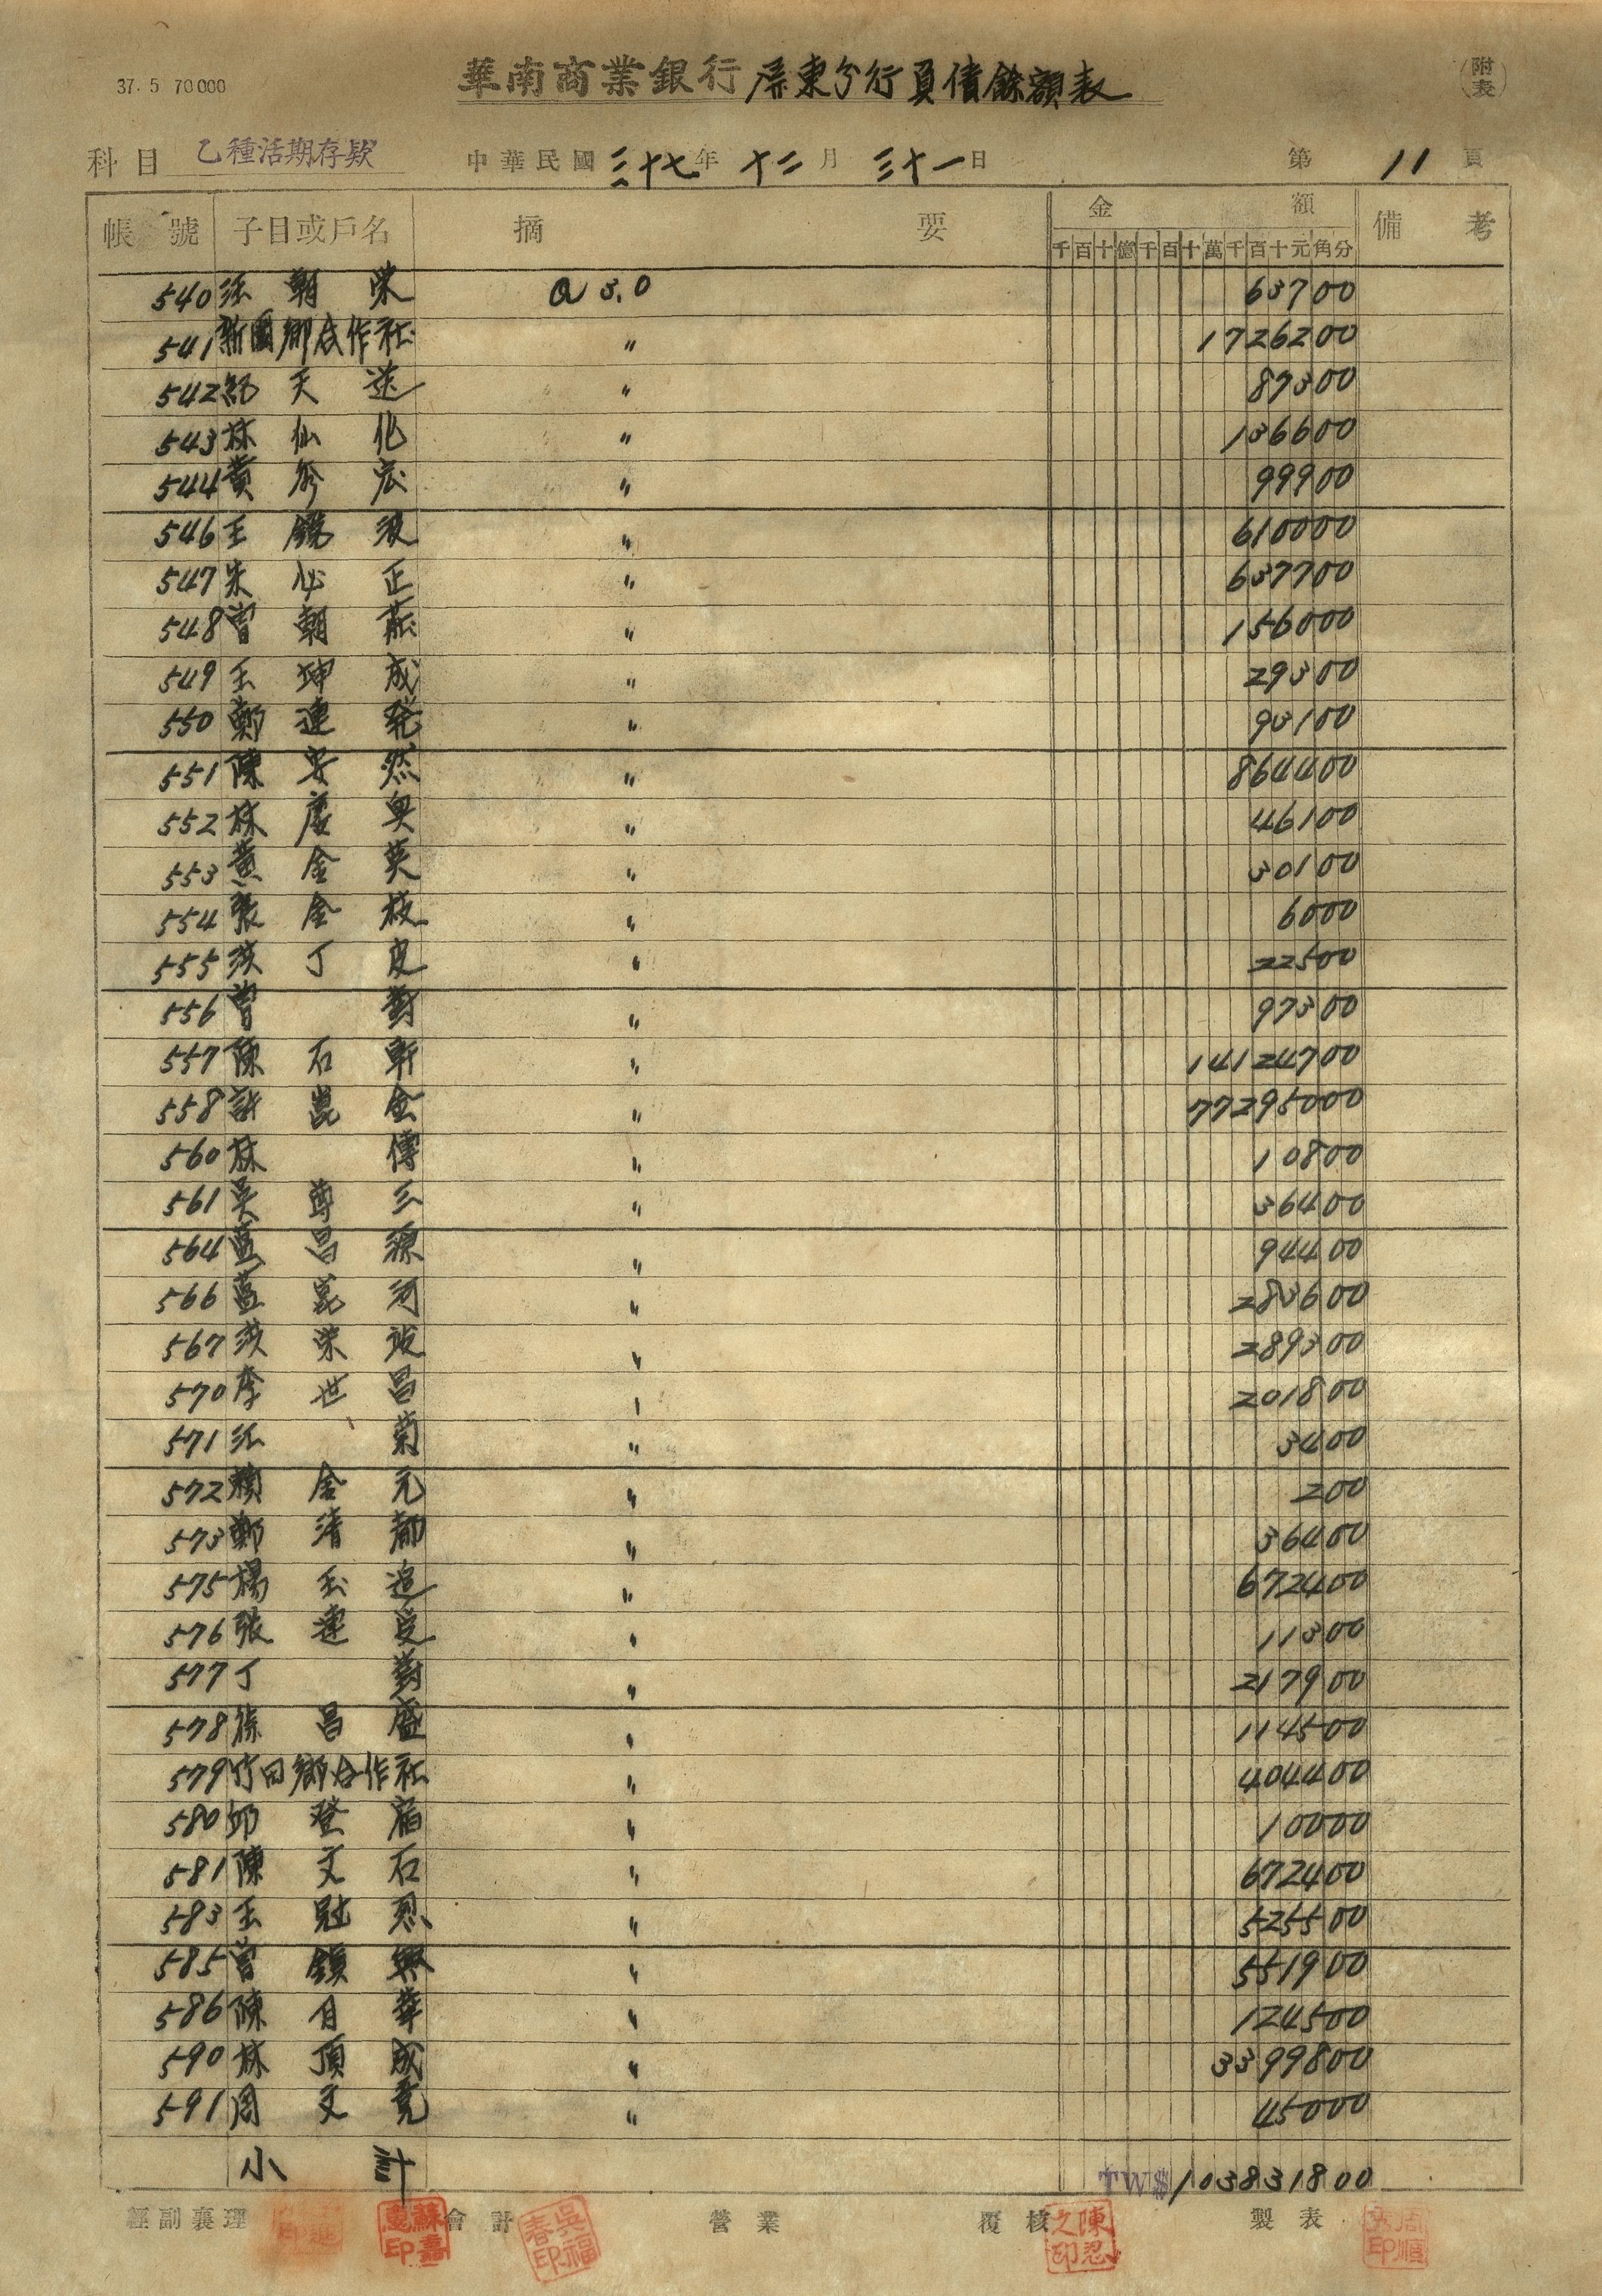 37. 5 70000
華南商業銀行屏東分行負債餘額表
(附表)
科目 乙種活期存欵 中華民國三十七年十二月三十一日 第11頁
帳號 子目或戶名 摘要 金額 備考
千百十億千百十萬千百十元角分
540 江朝榮 @ 3.0 63700
541 新園鄉合作社 〃 1726200
542 紀天送 〃 87300
543 林仙化 〃 136600
544 黃 〃 99900
546 王錫波 〃 610000
547 朱必正 〃 637700
548 曾朝 〃 156000
549 王坤成 〃 29300
550 鄭連発 〃 93100
551 陳安然 〃 864400
552 林慶 〃 46100
553 黃金英 〃 30100
554 張金枝 〃 6000
555 洪丁皮 〃 22500
556 曾對 〃 97300
557 陳石軒 〃 14124700
558 許崑金 〃 77295000
560 林傳 〃 10800
561 吳尊三 〃 36400
564 藍昌源 〃 94400
566 藍崑河 〃 283600
567 洪榮 〃 289300
570 李世昌 〃 201800
571 江菊 〃 3400
572 賴金元 〃 200
573 鄭清都 〃 36400
575 楊玉追 〃 672400
576 張連 〃 11300
577 丁對 〃 217900
578 徐昌盛 〃 114500
579 竹田鄉合作社 〃 404400
580 邱登 〃 10000
581 陳文石 〃 672400
583 王冠烈 〃 525500
585 曾鎮興 〃 551900
586 陳月華 〃 124500
590 林頂成 〃 3399800
591 周文竟 〃 45000
小計 TW$103831800
經副襄理 會計 營業 覆核 製表
蘇嘉惠印
吳福春印
陳忍之印